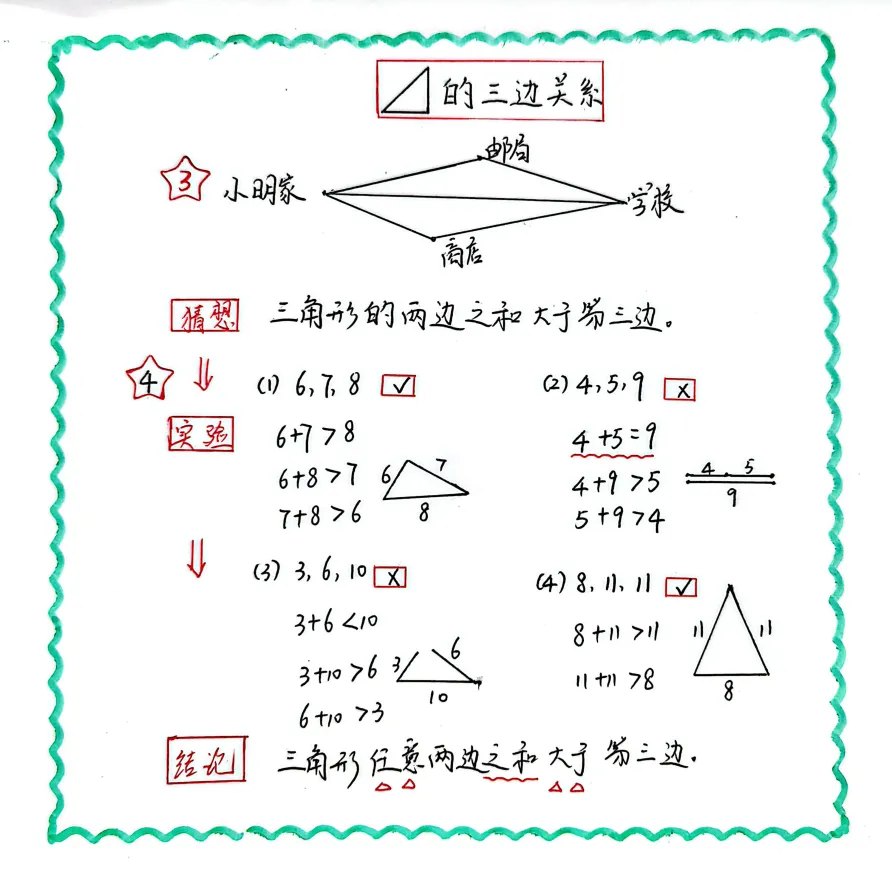 的三边关系
邮局
3 小明家 学校
商店
猜想 三角形的两边之和大于第三边。
4 (1) 6,7,8 ✓ (2) 4,5,9 x
实验 6+7>8 4+5=9
6+8>7 6 7 4+9>5 4 5
7+8>6 8 5+9>4 9
(3) 3,6,10 x (4) 8,11,11 ✓
3+6<10 8+11>11 11 11
3+10>6 3 6 11+11>8 8
6+10>3 10
结论 三角形任意两边之和大于第三边.